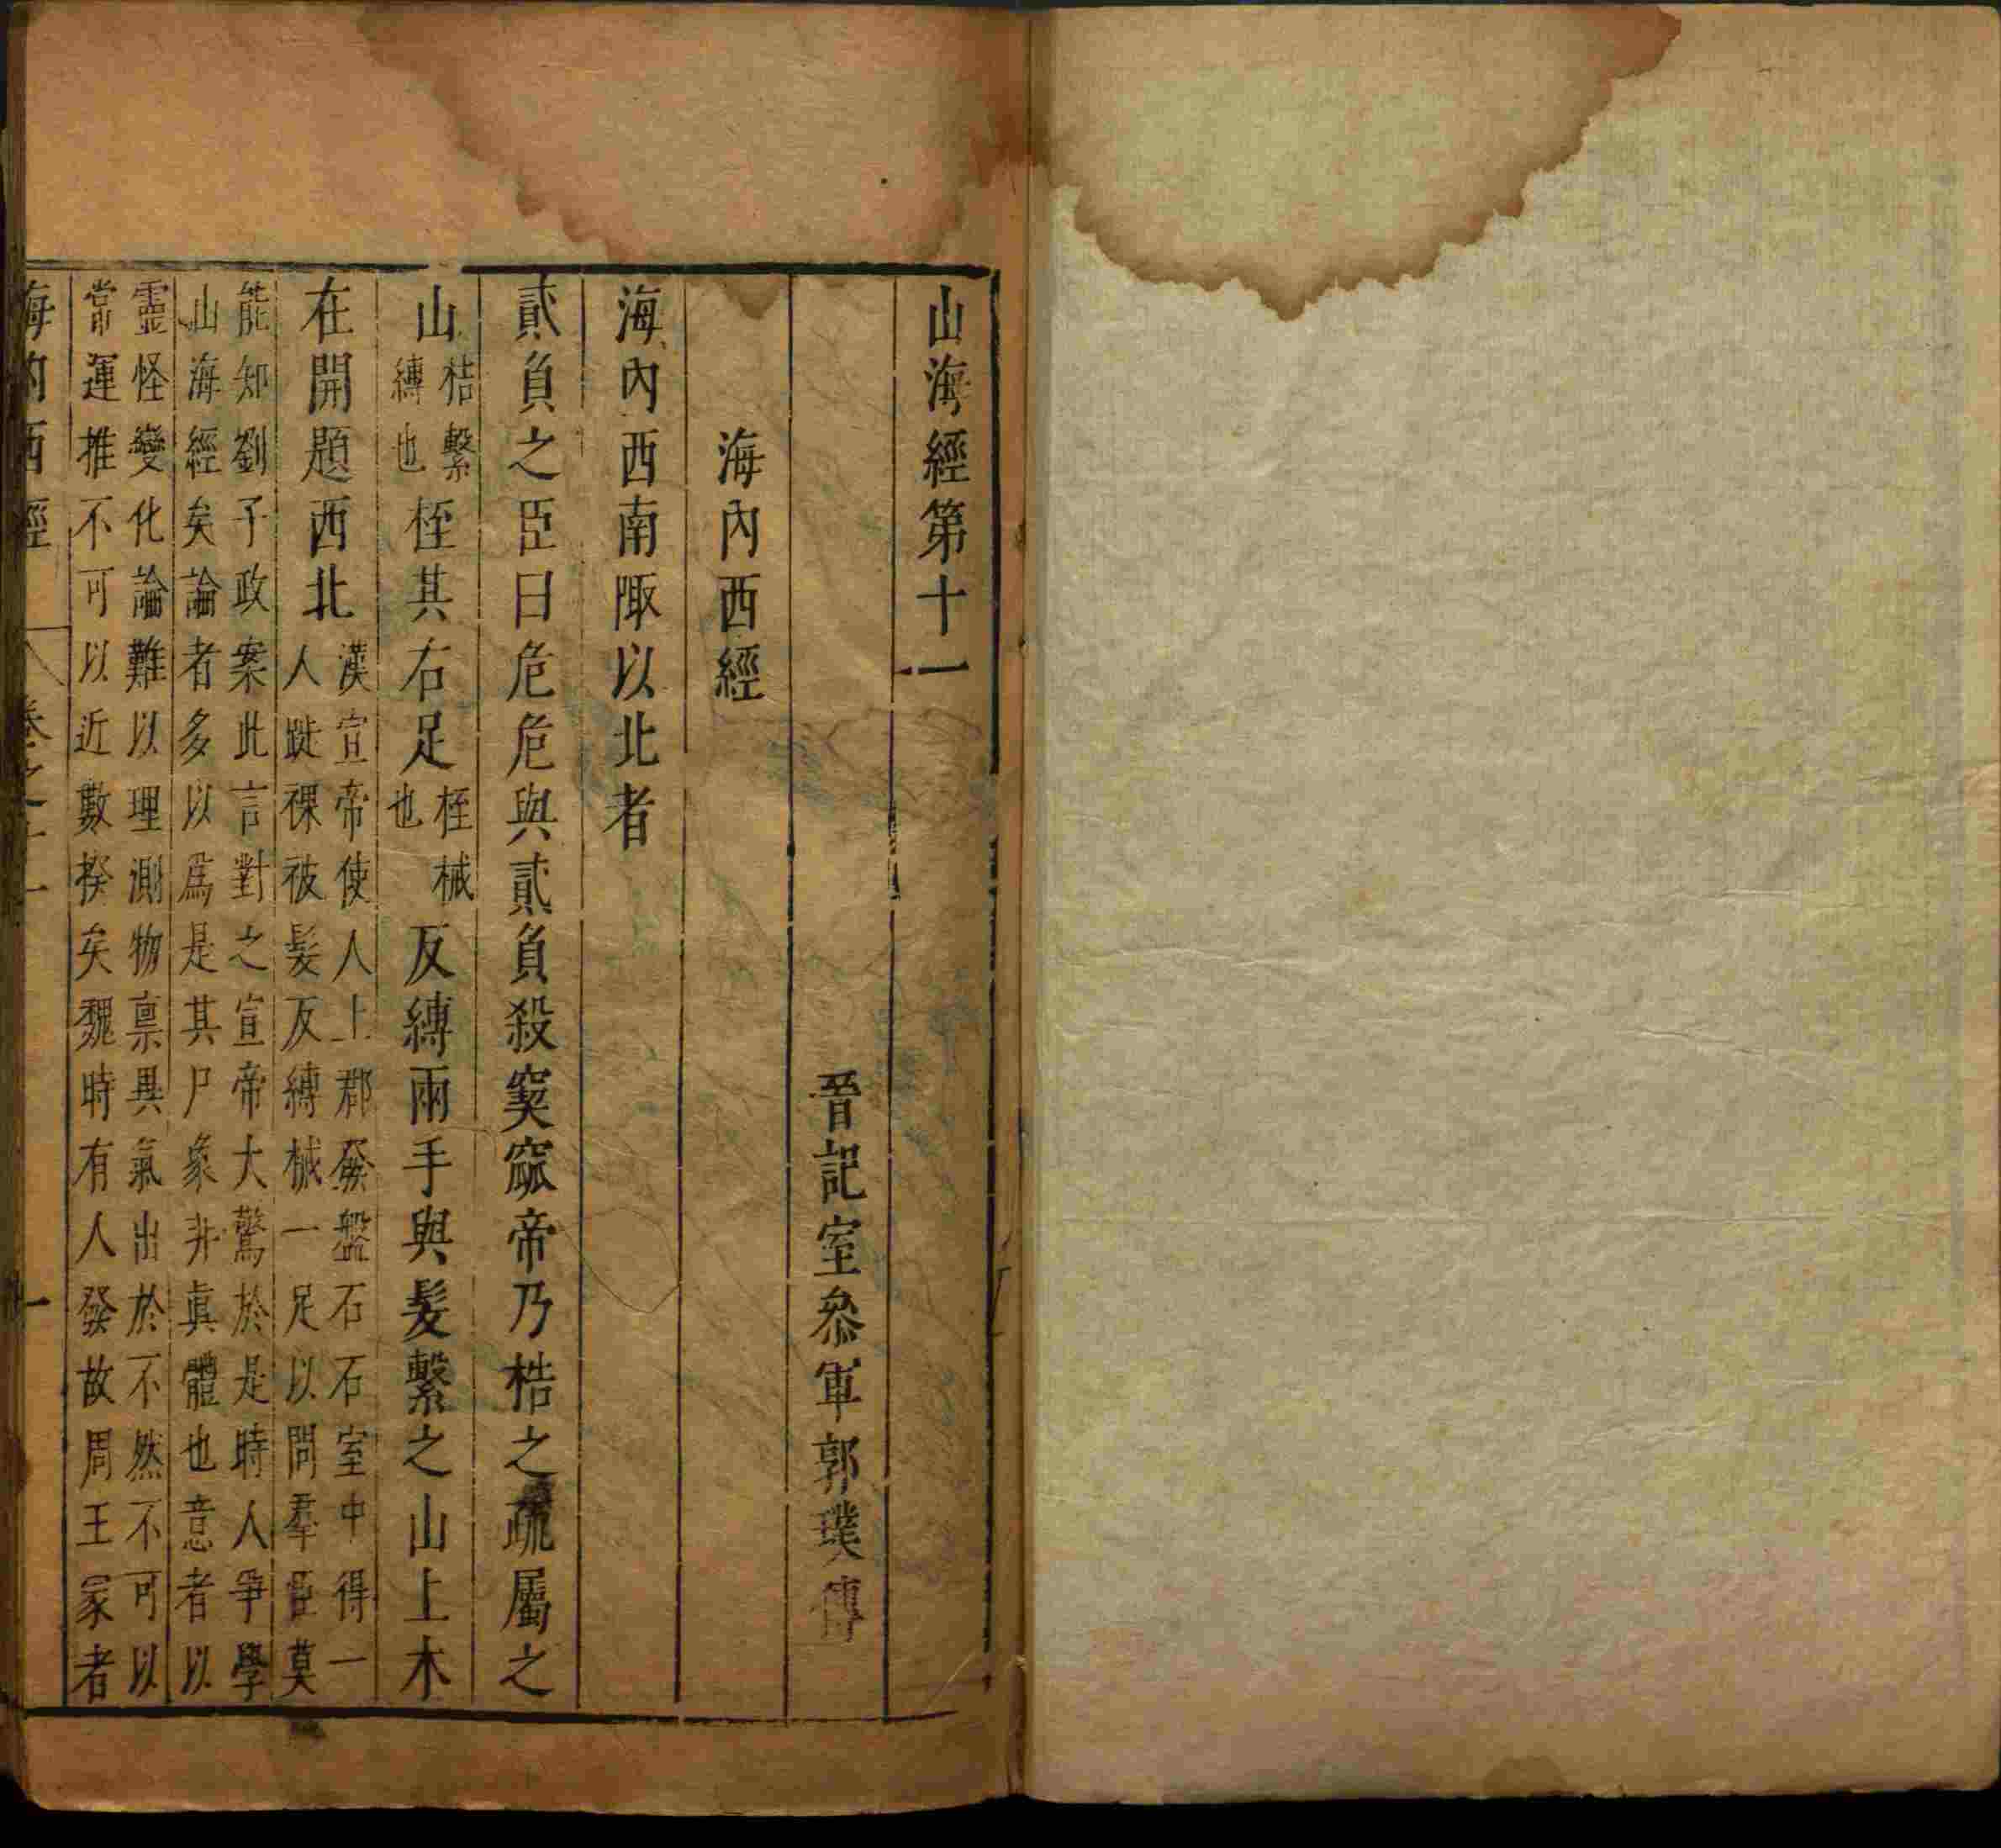 山海經第十一
晉記室參軍郭璞傳
海內西經
海內西南陬以北者
貳負之臣曰危危與貳負殺窫窳帝乃梏之疏屬之
山梏繫縛也桎其右足桎械也反縛兩手與髮繫之山上木
在開題西北漢宣帝使人上郡發盤石石室中得一
人跣裸被髮反縛械一足以問羣臣莫
能知劉子政案此言對之宣帝大驚於是時人爭學
山海經矣論者多以爲是其尸象非眞體也意者以
靈怪變化論難以理測物禀異氣出於不然不可以
常運推不可以近數揆矣魏時有人發故周王冢者
海內西經 卷之十一 一